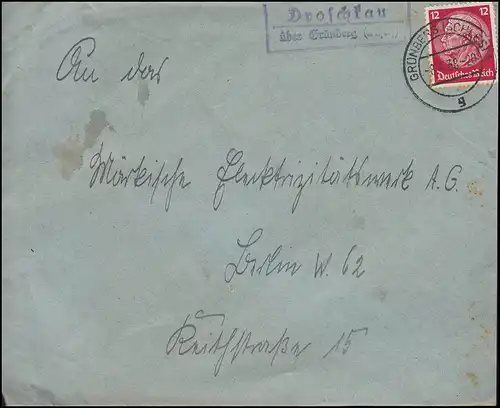 Droschkau
über Grünberg
12 12
Deutsches Reich
GRÜNBERG (SCHLES)
g
An das
Märkische Elektrizitätswerk A.G.
Berlin W. 62
Keithstraße 15